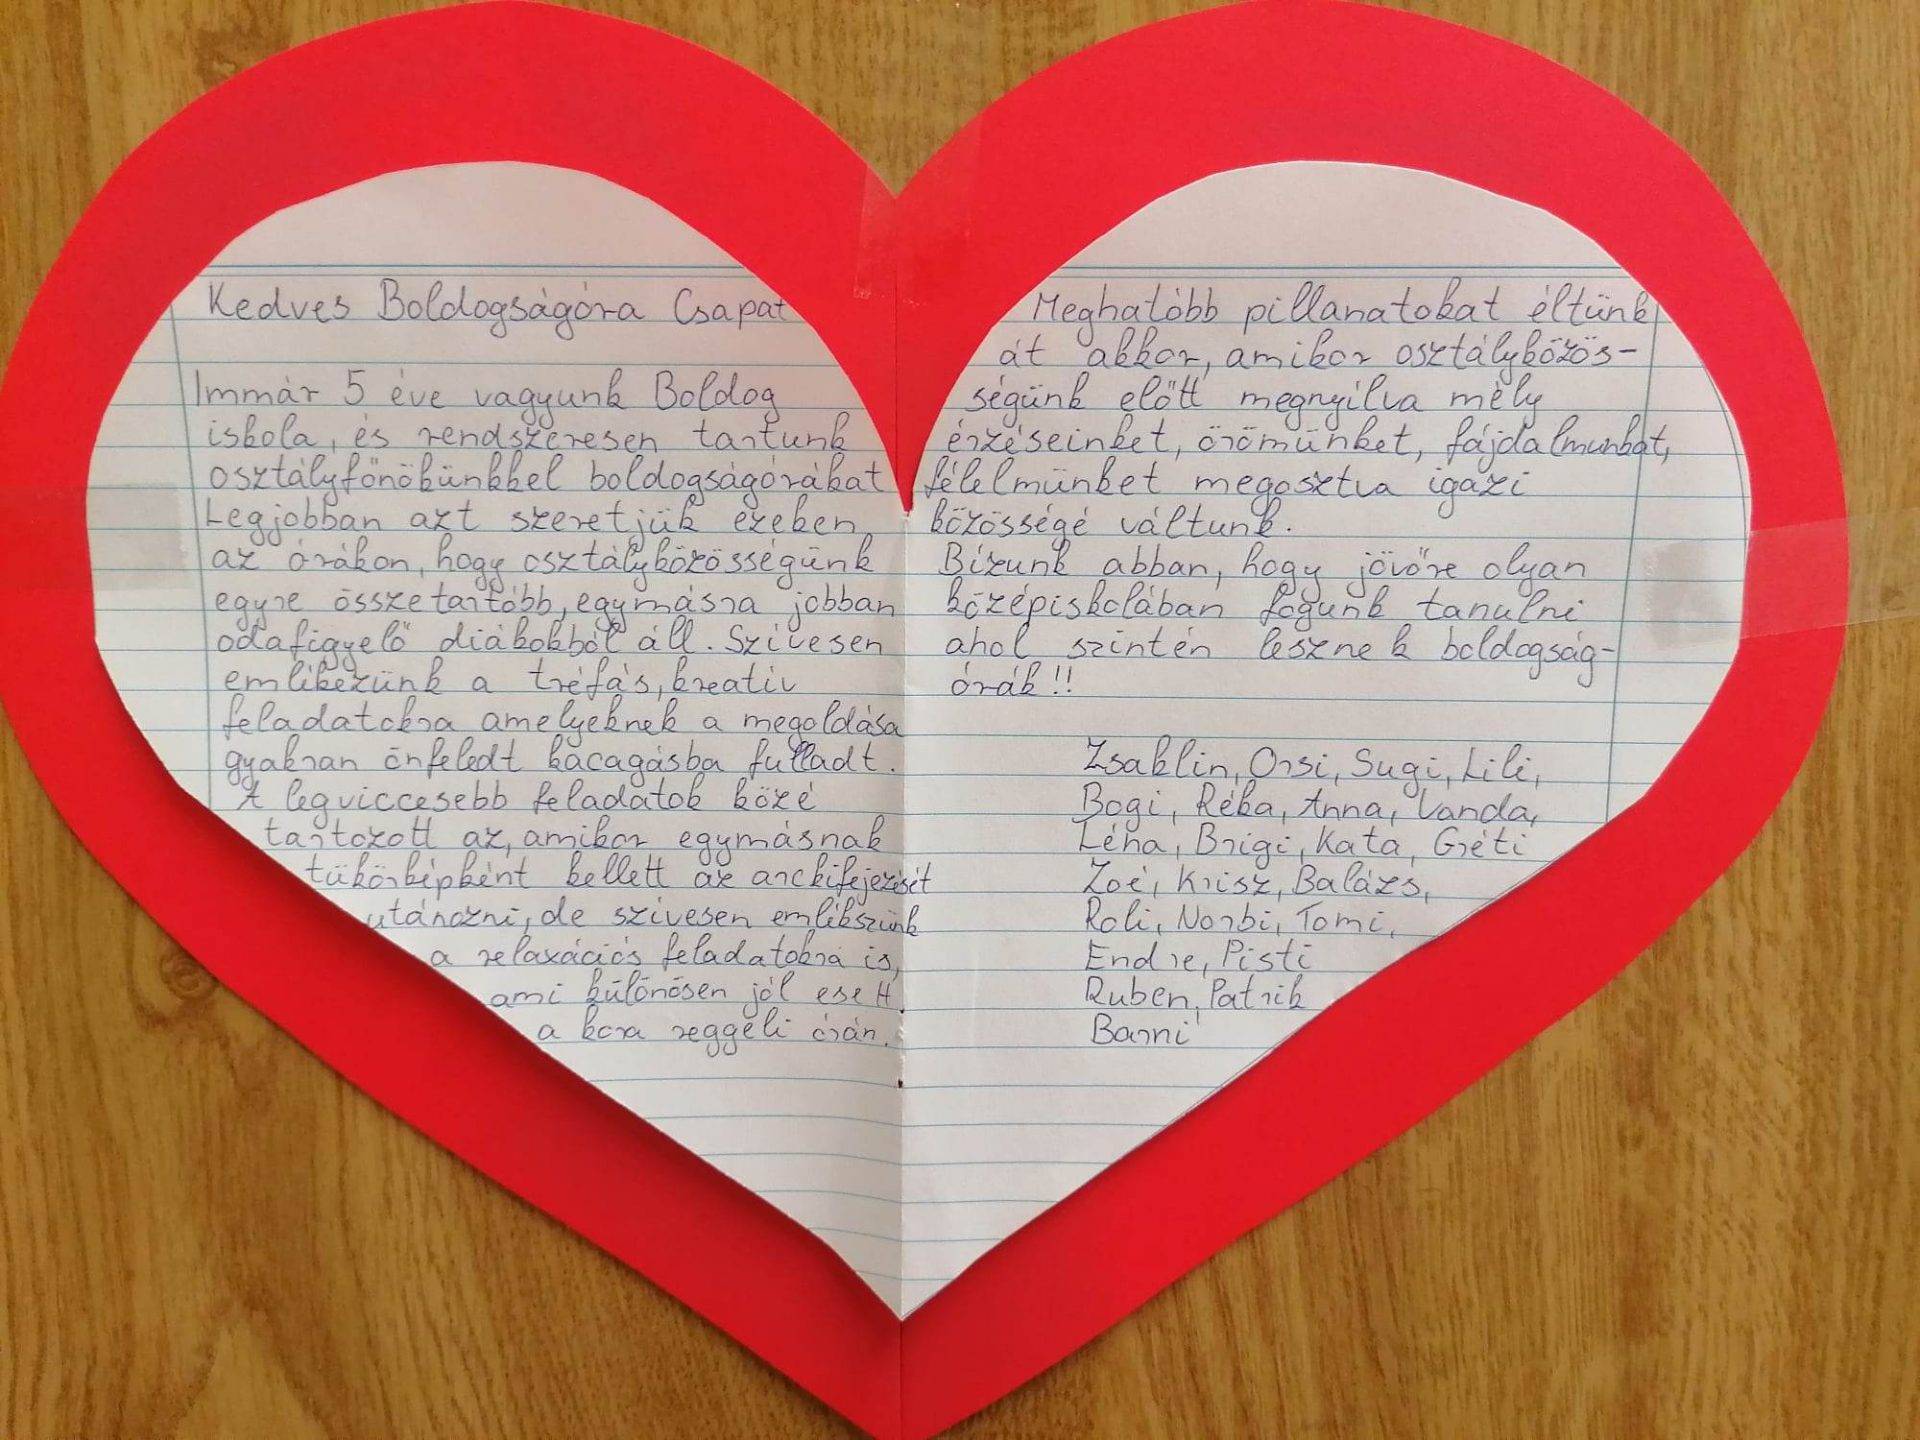 Kedves Boldogságóra Csapat
Immár 5 éve vagyunk Boldog
iskola, és rendszeresen tartunk
osztályfőnökünkkel boldogságórákat
Legjobban azt szeretjük ezeken
az órákon, hogy osztályközösségünk
egyre összetartóbb, egymásra jobban
odafigyelő diákokból áll. Szívesen
emlékezünk a tréfás, kreatív
feladatokra amelyeknek a megoldása
gyakran önfeledt kacagásba fulladt.
A legviccesebb feladatok közé
tartozott az, amikor egymásnak
tükörképként kellett az arckifejezését
utánozni, de szívesen emlékszünk
a relaxációs feladatokra is,
ami különösen jól esett
a kora reggeli órán.
Meghatóbb pillanatokat éltünk
át akkor, amikor osztályközös-
ségünk előtt megnyílva mély
érzéseinket, örömünket, fájdalmunkat,
félelmünket megosztva igazi
közösségé váltunk.
Bízunk abban, hogy jövőre olyan
középiskolában fogunk tanulni
ahol szintén lesznek boldogság-
órák!!
Zsaklin, Orsi, Sugi, Lili,
Bogi, Réka, Anna, Vanda,
Léna, Brigi, Kata, Gréti
Zoé, Krisz, Balázs,
Roli, Norbi, Tomi,
Endre, Pisti
Ruben, Patrik
Barni